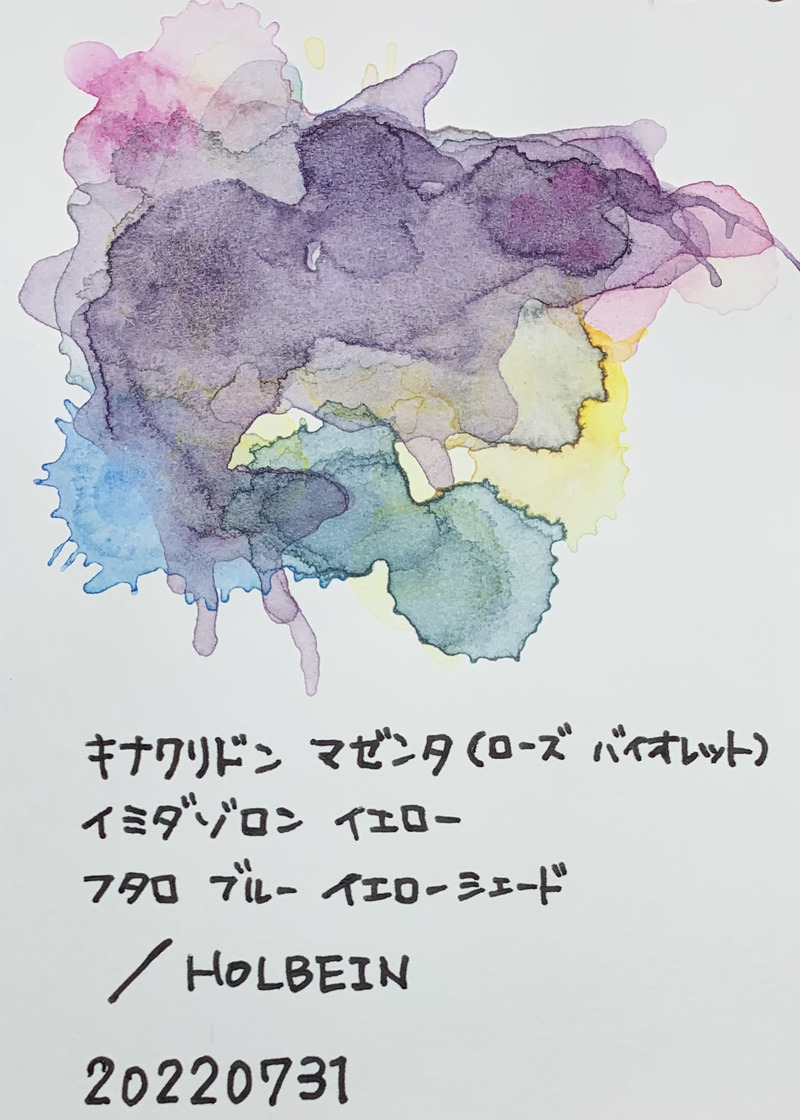 キナクリドン マゼンタ(ローズ バイオレット)
イミダゾロン イエロー
フタロ ブルー イエローシェード
／HOLBEIN
20220731